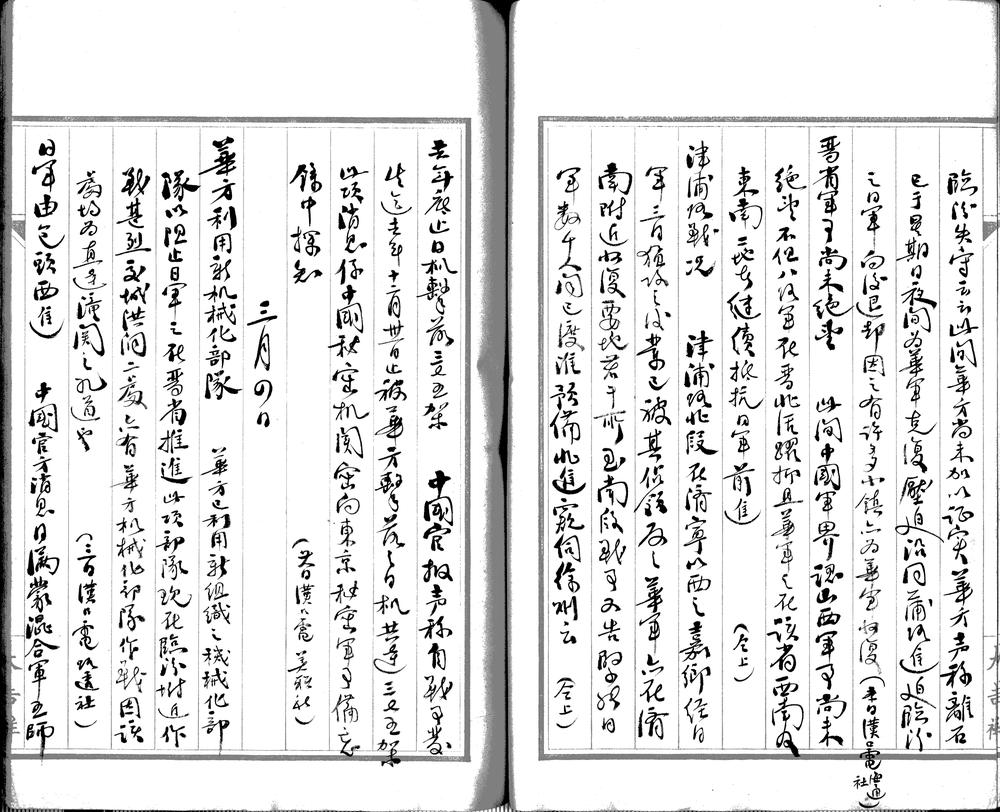 臨汾失守云云此間華方尚未加以証实華方声称離石
已于星期日夜間为華軍克復壓迫沿同蒲路進迫臨汾
之日軍向後退却因之有许多小鎮亦为華軍收復(日漢口電 通社)
晋省軍事尚未绝望 此间中國軍界認山西軍事尚未
绝望不但八路軍在晋北活躍抑且華軍之在該省西南及
東南二地者继續抵抗日軍前進 (仝上)
津浦路戰况 津浦路北段在濟寧以西之嘉鄉经日
軍三日猛攻之後業已被其佔領反之華軍亦在濟
南附近收復要地若干所至南段戰事又告緊张日
軍數千人闻已渡淮預備北進窺伺徐州云 (仝上)
去年底止日机擊落三五架 中國官报声称自戰事發
生迄去年十二月卅一日止被華方擊落之日机共達三三五架
此項消息係中國秘密机関密向東京秘密軍事備忘
錄中探知 (日漢口電 美联社)
三月四日
華方利用新机械化部隊 華方已利用新組織之機械化部
隊以阻止日軍之在晋省推進此項部隊现在臨汾附近作
戰甚烈 城洪洞二處亦有華方机械化部隊作戰因該
處均为直達潼関之孔道也 (三日漢口電 路透社)
日軍由包頭西進 中國官方消息日滿蒙混合軍五師